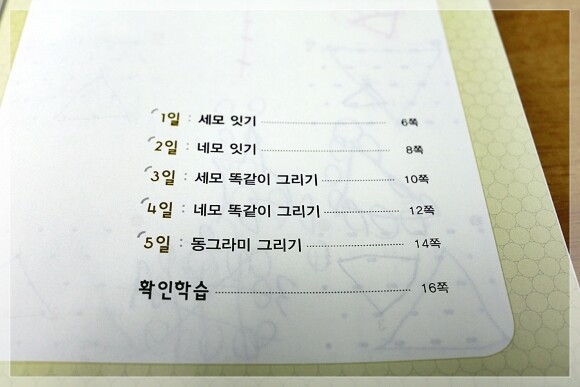 1일 : 세모 잇기 6쪽
2일 : 네모 잇기 8쪽
3일 : 세모 똑같이 그리기 10쪽
4일 : 네모 똑같이 그리기 12쪽
5일 : 동그라미 그리기 14쪽
확인학습 16쪽